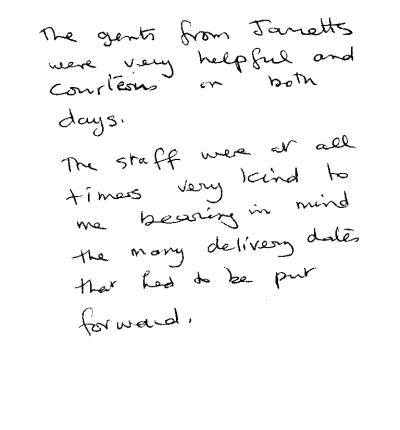 The gents from Jarretts
were very helpful and
courteous on both
days.
The staff were at all
times very kind to
me bearing in mind
the many delivery dates
that had to be put
forward.